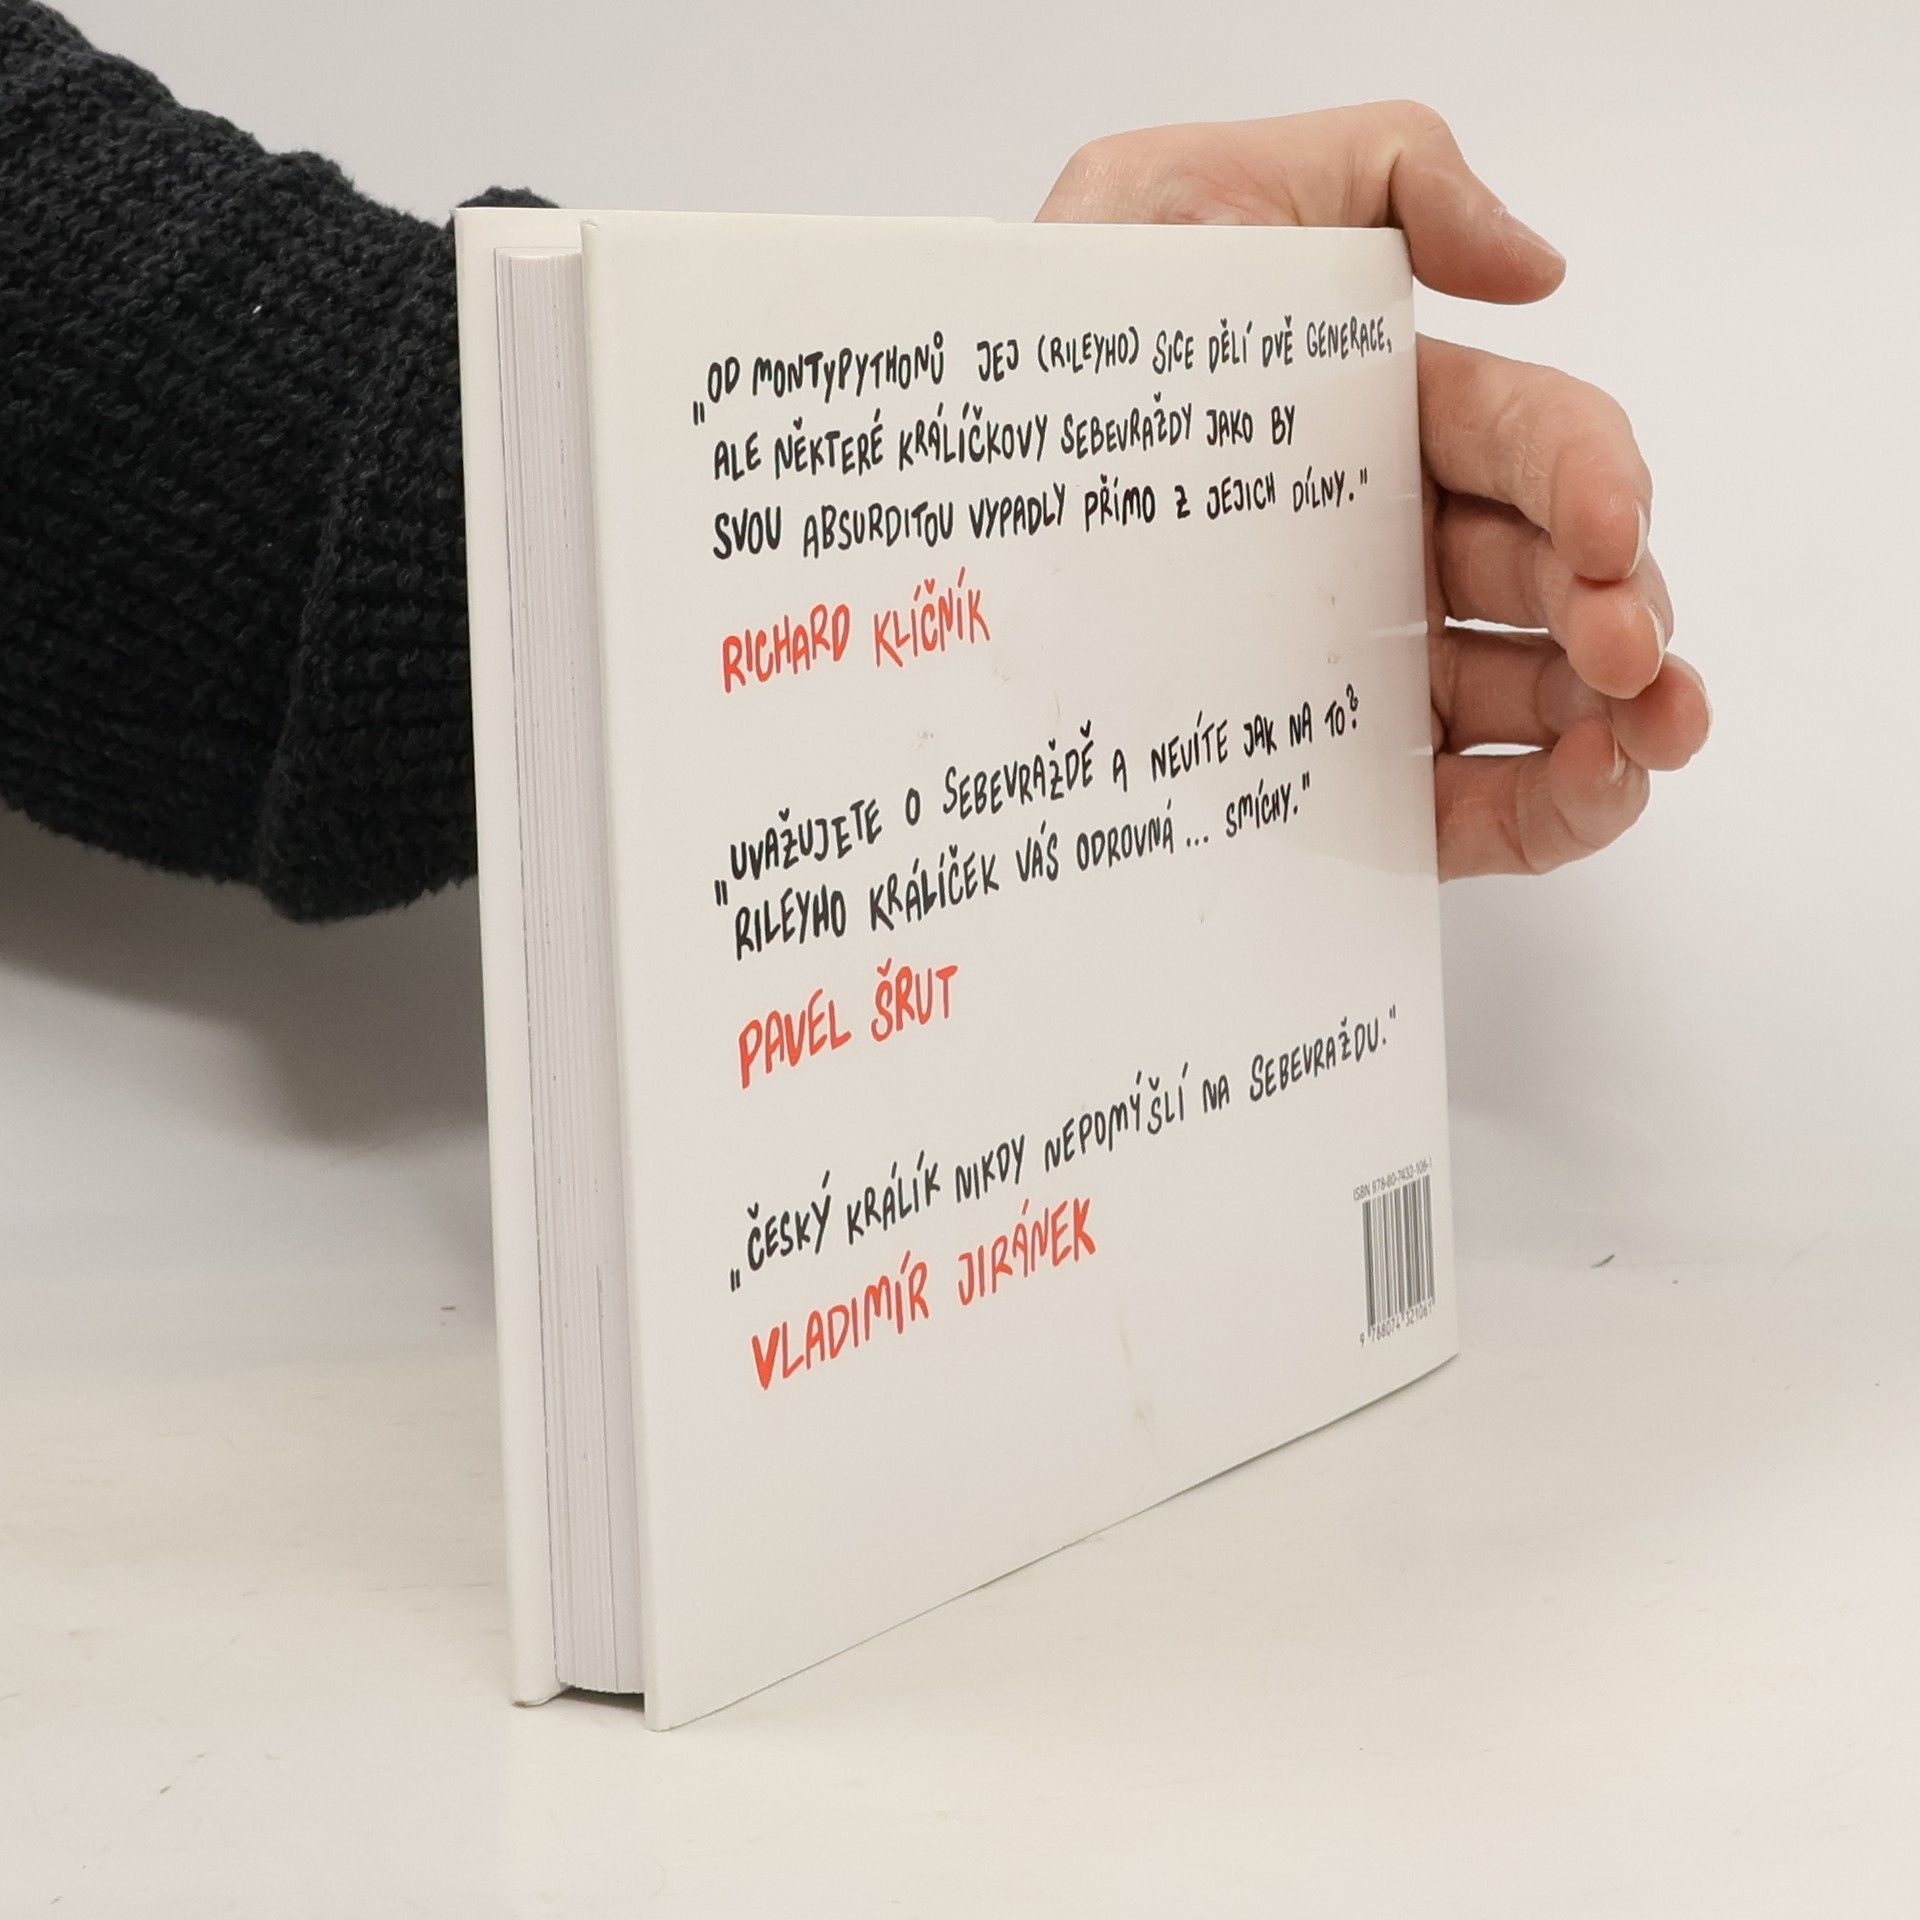 „OD MONTYPYTHONŮ JEJ (RILEYHO) SICE DĚLÍ DVĚ GENERACE,
ALE NĚKTERÉ KRÁLÍČKOVY SEBEVRAŽDY JAKO BY
SVOU ABSURDITOU VYPADLY PŘÍMO Z JEJICH DÍLNY."
RICHARD KLÍČNÍK
„UVAŽUJETE O SEBEVRAŽDĚ A NEVÍTE JAK NA TO?
RILEYHO KRÁLÍČEK VÁS ODROVNÁ... SMÍCHY."
PAVEL ŠRUT
„ČESKÝ KRÁLÍK NIKDY NEPOMÝŠLÍ NA SEBEVRAŽDU."
VLADIMÍR JIRÁNEK
ISBN 978-80-7432-106-1
9 788074 321061